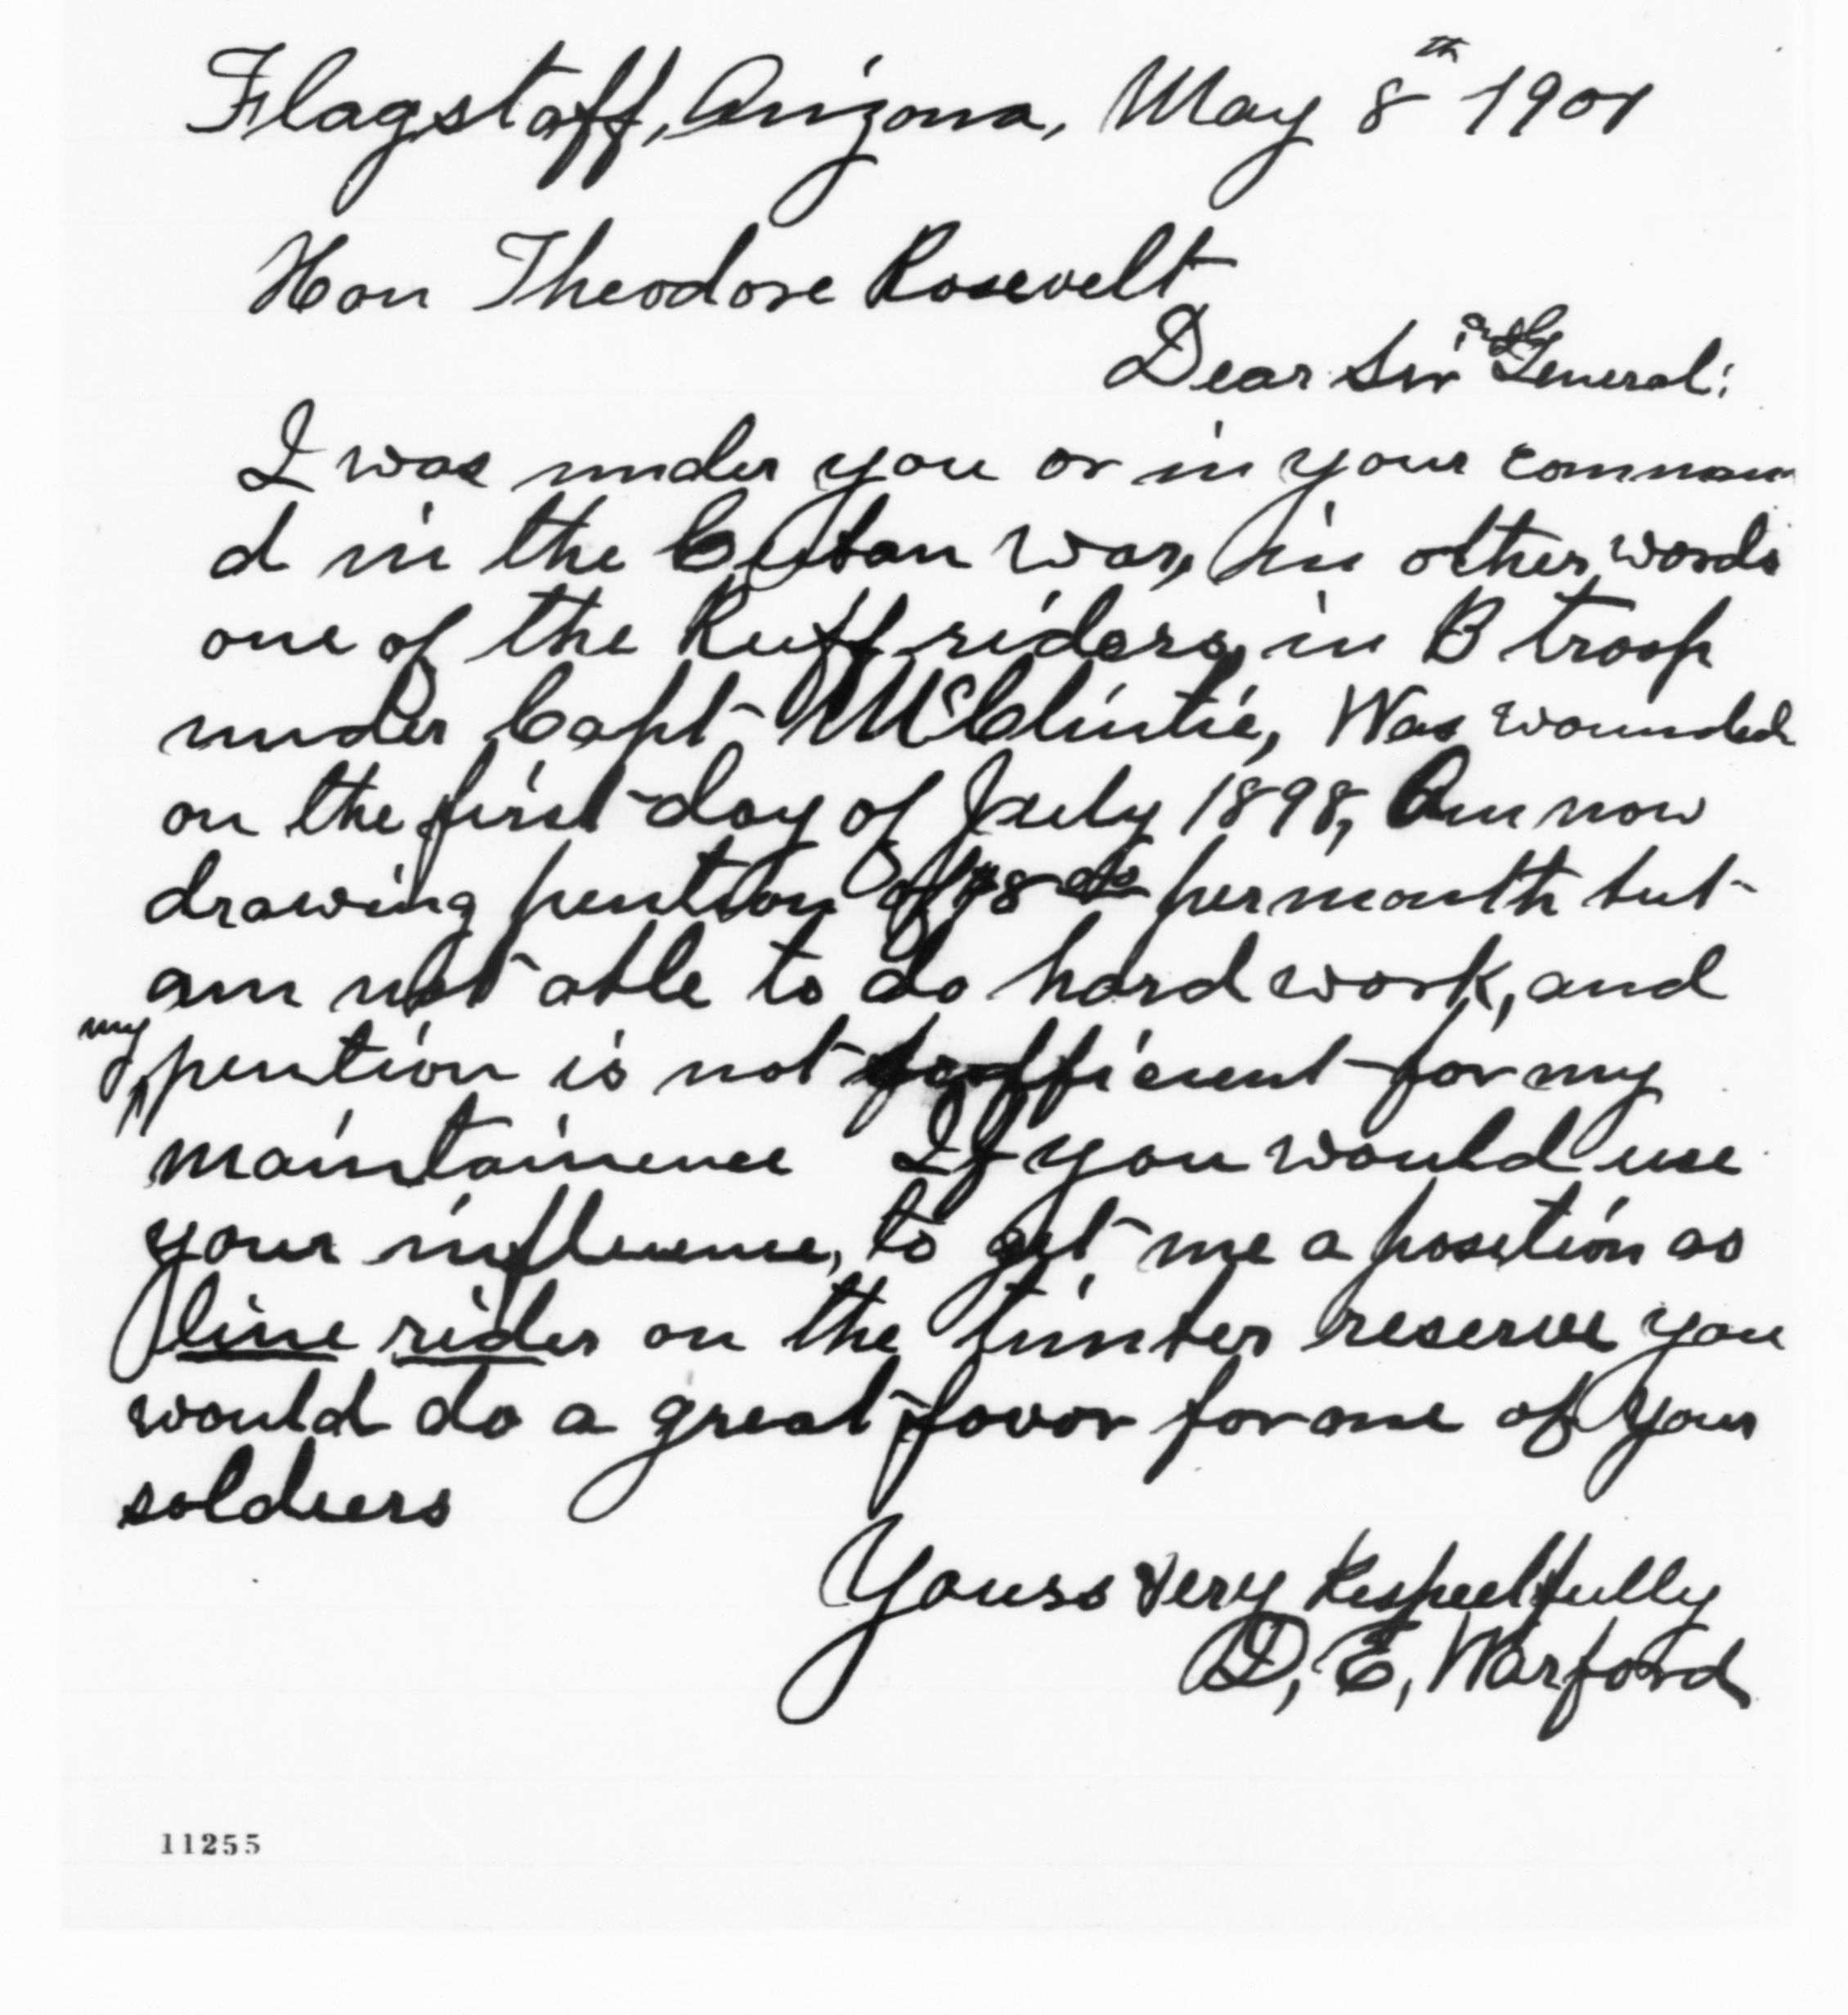 Flagstaff, Arizona, May 8th 1901
Hon Theodore Rosevelt
Dear Sir General:
I was under you or in your comman
d in the Cuban war, in other words
one of the Ruff riders, in B troop
under Capt McClintie, Was wounded
on the first day of July 1898, Am now
drawing pention of $8 per month but
am not able to do hard work, and
my pention is not sofficient for my
maintainence If you would use
your influence, to get me a position as
line rider on the timber reserve you
would do a great favor for one of your
soldiers
Yours very Respectfully
D, E, Warford
11255